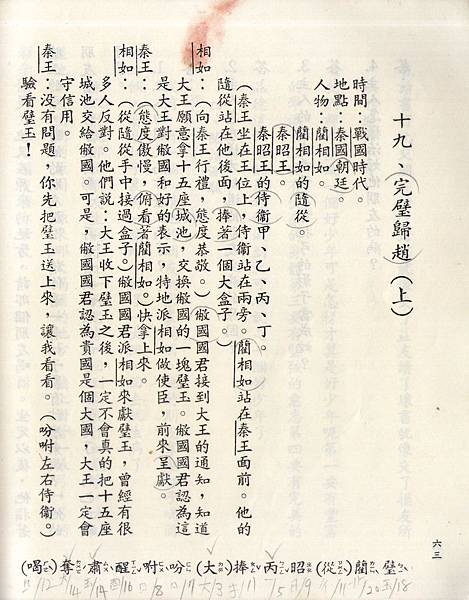 十九、完璧歸趙(上)
時間：戰國時代。
地點：秦國朝廷。
人物：藺相如。
藺相如的隨從。
秦昭王。
秦昭王的侍衞甲、乙、丙、丁。
（秦王坐在王位上，侍衞站在兩旁。藺相如站在秦王面前。他的
隨從站在他後面，捧著一個大盒子。）
相如：（向秦王行禮，態度恭敬。）敝國國君接到大王的通知，知道
大王願意拿十五座城池，交換敝國的一塊璧玉。敝國國君認為這
是大王對敝國和好的表示，特地派相如做使臣，前來呈獻。
秦王：（態度傲慢，俯看著藺相如。）快拿上來。
相如：（從隨從手中接過盒子。）敝國國君派相如來獻璧玉，曾經有很
多人反對。他們說：大王收下璧玉之後，一定不會真的把十五座
城池交給敝國。可是，敝國國君認為貴國是個大國，大王一定會
守信用。
秦王：沒有問題，你先把璧玉送上來，讓我看看。（吩咐左右侍衞。）
驗看璧玉！
六三
璧 藺 (從) 昭 丙 捧 (大) 吩 咐 醒 肅 奪 (喝)